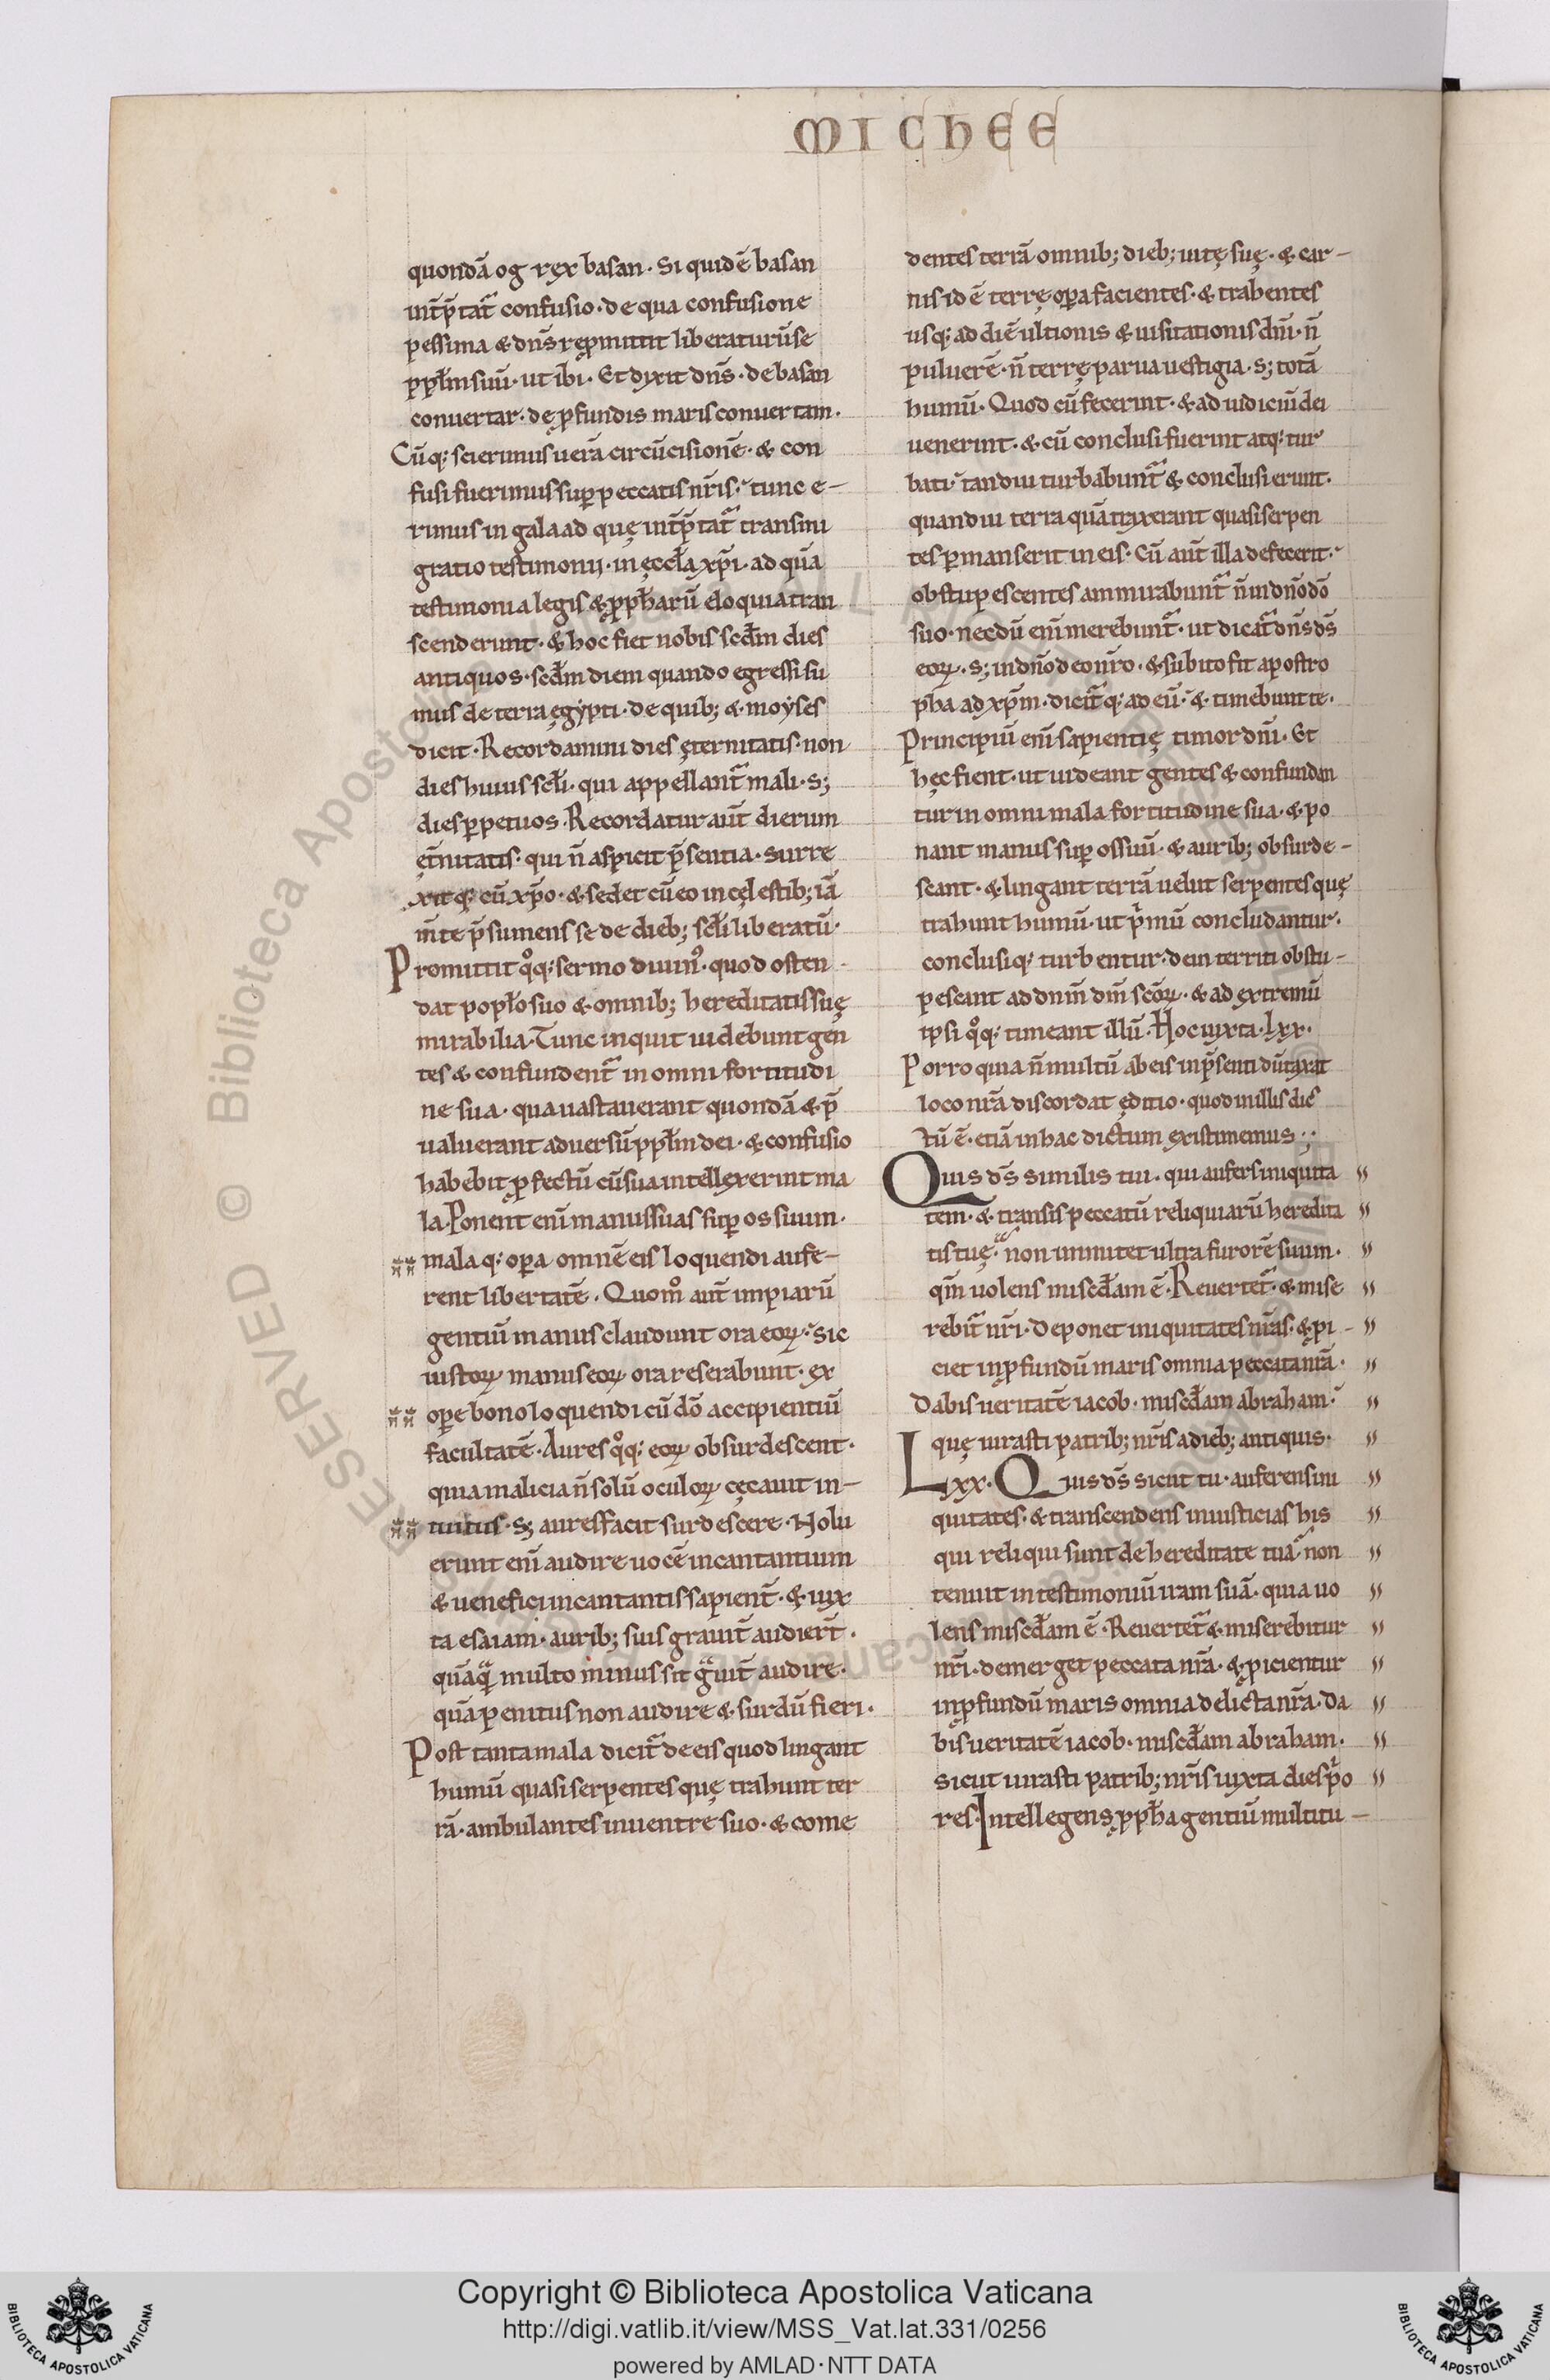 MICHEE
quondā og rex basan. Si quidē basan
int̄p̄tat᷑ confusio. de qua confusione
pessima & dn̄s rep̱mittit liberaturū se
pp̱lm̄ suū. ut ibi. Et dixit dn̄s. de basan
conuertar. de p̱fundis maris conuertam.
Cūq; scierimus uerā circūcisionē. & con
fusi fuerimus suꝑ peccatis nr̄is. tunc e-
rimus in galaad quę int̄p̄tat᷑ transmi
gratio testimonij. in ęccła xp̄i. ad quā
testimonia legis & ꝓph̄arū eloquia tran
scenderunt. & hoc fiet nobis scđm dies
antiquos. scđm diem quando egressi su
mus de terra ęgypti. de quib; & moyses
dicit. Recordamini dies ęternitatis. non
dies huius scłi. qui appellant᷑ mali. s;
dies ꝑpetuos. Recordatur aūt dierum
ęt̄nitatis. qui n̄ aspicit p̄sentia. surre
xitq; cū xp̄o. & sedet cū eo in cęlestib; iā
m̄te p̄sumens se de dieb; scłi liberatū.
Promittit qͦq; sermo diuin᷒. quod osten
dat popło suo & omnib; hereditatis suę
mirabilia. Tunc inquit uidebunt gen
tes & confundent᷑ in omni fortitudi
ne sua. qua uastauerant quondā & p̄
ualuerant aduersū pp̱lm̄ dei. & confusio
habebit ꝓfectū cū sua intellexerint ma
la. Ponent enī manus suas suꝑ os suum.
malaq; oꝑa omnē eis loquendi aufe-
rent libertatē. Quom̊ aūt impiarū
gentiū manus claudunt ora eoꝝ. sic
iustoꝝ manus eoꝝ ora reserabunt. ex
oꝑe bono loquendi cū dō accipientiū
facultatē. Aures qͦq; eoꝝ obsurdescent.
quia malicia n̄ solū oculoꝝ cęcauit in-
tuitus. s; aures facit surdescere. Nolu
erunt enī audire uocē incantantium
& uenefici incantantis sapient̄. & iux
ta esaiam. aurib; suis grauit̄ audiert̄.
quāqͣ multo minus sit gͣuit̄ audire.
quā penitus non audire & surdū fieri.
Post tanta mala dicit᷑ de eis quod lingant
humū quasi serpentes quę trahunt ter
rā. ambulantes in uentre suo. & come
dentes terrā omnib; dieb; uitę suę. & car-
nis id ē terrę oꝑa facientes. & trahentes
usq; ad diē ultionis & uisitationis dnī. n̄
puluerē. n̄ terrę parua uestigia. s; totā
humū. Quod cū fecerint. & ad iudiciū dei
uenerint. & cū conclusi fuerint atq; tur
bati. tandiu turbabunt᷑ & conclusi erunt.
quandiu terra quā traxerant quasi serpen
tes ꝑmanserit in eis. Cū aūt illa defecerit.
obstupescentes ammirabunt᷑ n̄ in dn̄o dō
suo. necdū enī merebunt᷑. ut dicat᷑ dn̄s ds̄
eoꝝ. s; in dn̄o deo nr̄o. & subito fit apostro
pha ad xp̄m. dicit᷑q; ad eū. & timebunt te.
Principiū enī sapientię timor dnī. Et
hęc fient. ut uideant gentes & confundan
tur in omni mala fortitudine sua. & po
nant manus suꝑ os suū. & aurib; obsurde-
scant. & lingant terrā uelut serpentes quę
trahunt humū. ut p̍mū concludantur.
conclusiq; turbentur. dein territi obstu-
pescant ad dnm̄ dm̄ scōꝝ. & ad extremū
ipsi qͦq; timeant illū. Hoc iuxta. lxx.
Porro quia n̄ multū ab eis in p̄senti dūtaxat
loco nr̄a discordat ęditio. quod in illis dic̄
tū ē. etiā in hac dictum existimemus.
Quis ds̄ similis tui. qui aufers iniquita
tem. & transis peccatū reliquiarū heredita
tis tuę. non immitet ultra furorē suum.
qm̄ uolens miscđam ē. Reuertet᷑. & mise
rebit᷑ nr̄i. deponet iniquitates nr̄as. & ꝓi-
ciet in ꝓfundū maris omnia peccata nr̄a.
Dabis ueritatē iacob. miscđam abraham.
quę iurasti patrib; nr̄is a dieb; antiquis.
Lxx. Quis ds̄ sicut tu. auferens ini
quitates. & transcendens iniusticias his
qui reliqui sunt de hereditate tua. non
tenuit in testimoniū iram suā. quia uo
lens miscđam ē. Reuertet᷑ & miserebitur
nr̄i. demerget peccata nr̄a. & ꝓicientur
in ꝓfundū maris omnia delicta nr̄a. Da
bis ueritatē iacob. miscđam abraham.
sicut iurasti patrib; nr̄is iuxta dies p̍o
res. Intellegens ꝓph̄a gentiū multitu-
© Biblioteca Apostolica Vaticana
Copyright © Biblioteca Apostolica Vaticana
http://digi.vatlib.it/view/MSS_Vat.lat.331/0256
powered by AMLAD·NTT DATA
BIBLIOTECA APOSTOLICA VATICANA
BIBLIOTECA APOSTOLICA VATICANA